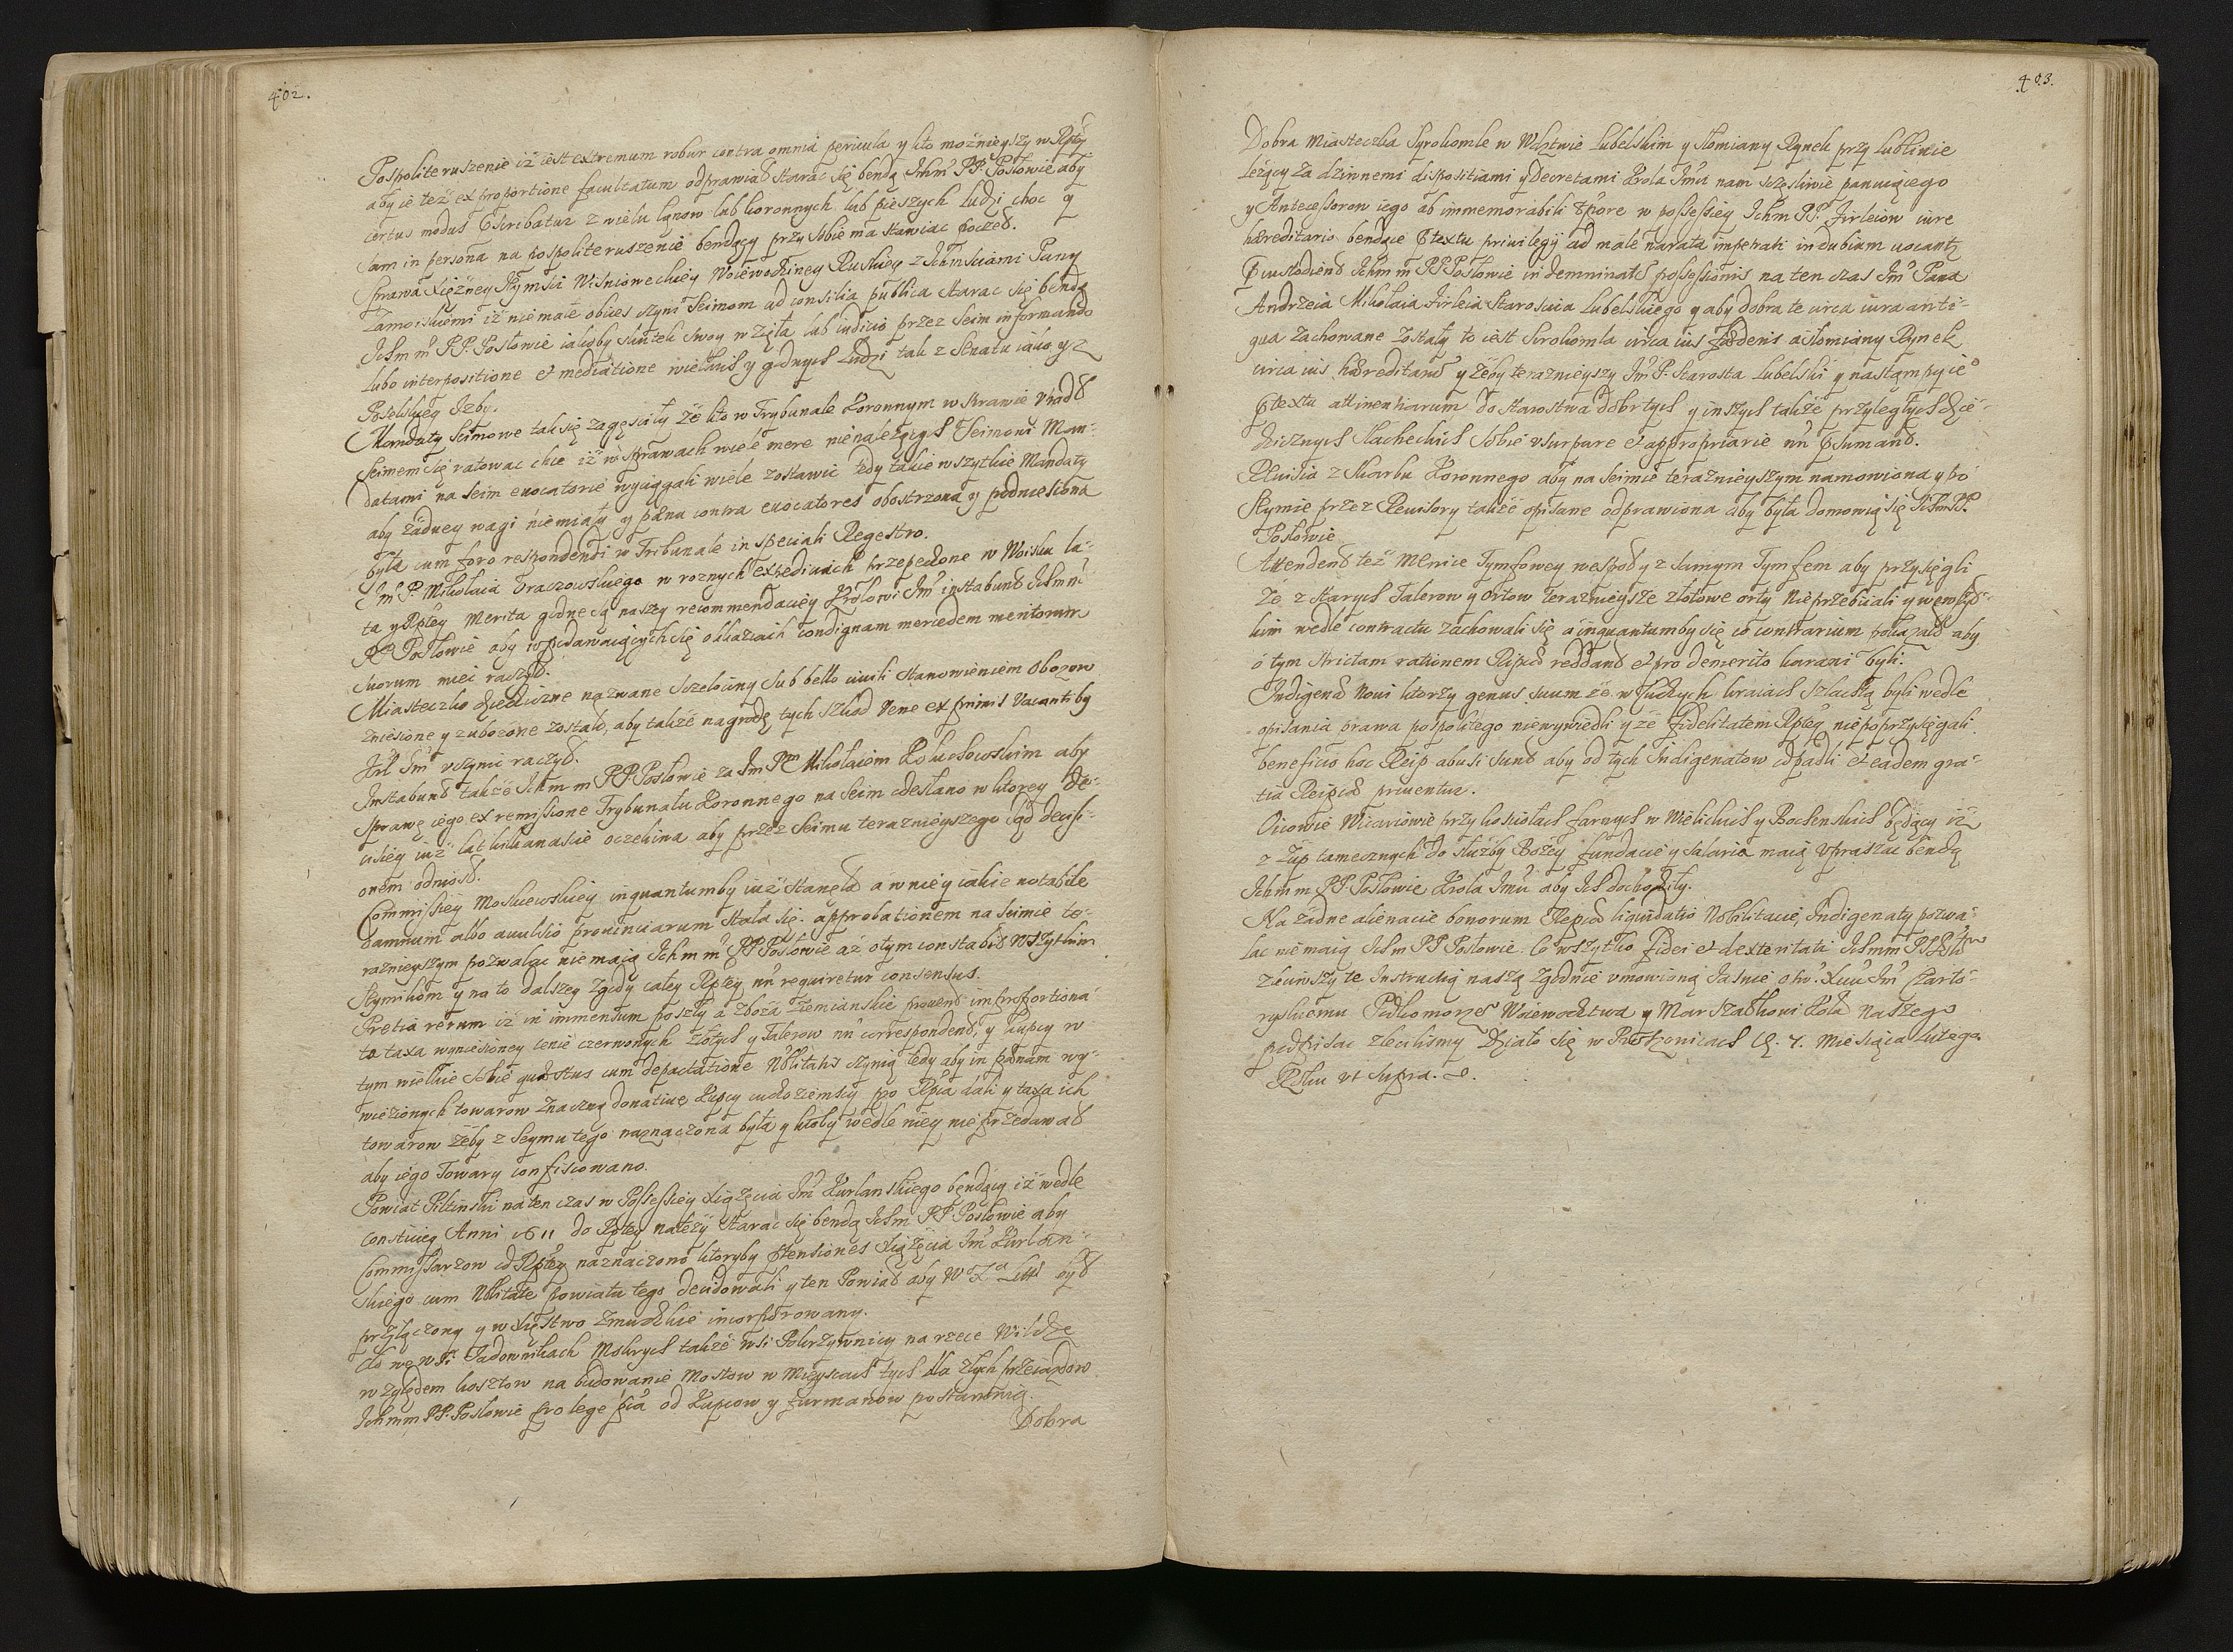 402.
Pospolite ruszenie iż iest extremum robur contra omnia pericula y kto możnieyszy w Rptey
aby ie też ex proportione facultatum odprawiał starać się bendą Ichm PP. Posłowie aby
certus modus scribatur z wielu łanow lub koronnych lub pieszych ludzi choc y
sam in persona na pospolite ruszenie bendący przy sobie ma stawiac poczet.
Sprawa Xiężney Jeymsci Wiśniowieckiey Woiewodziney Ruskiey z Ichmsciami Pany
Zamoiskiemi iż niemałe obices czyni Seimom ad consilia publica starac się bendą
Ichm m PP. Posłowie iakoby skutek swoy wzięła lub iudicio przez Seim informando
lubo interpositione et mediatione wielkich y godnych ludzi tak z Senatu iako y z
Poselskiey Izby.
Mandaty Seimowe tak się zagęsciły że kto w Trybunale Koronnym w sprawie upadł
Seimem się ratowac chce iż w sprawach wiele mere nienależących Seimowi Man-
datami na Seim euocatorie wyciągali wiele zostawić tedy takie wszytkie Mandaty
aby żadney wagi niemiały y pæna contra euocatores obostrzona y podniesiona
była cum foro respondendi w Tribunale in speciali Regestro.
Im P. Mikołaia Traczowskiego w roznych expediciach przepędzone w Woisku la-
ta y Rptey merita godne są naszy recommendaciey Krolowi Im instabunt Ichm m
PP Posłowie aby w podawaiących się okkaziach condignam mercedem meritorum
suorum mieć raczył.
Miasteczko dziedziczne nazwane Szczekociny sub bello ciuili stanowieniem Obozow
zniesione y zubożone zostało, aby także nagrodę tych szkod Vene ex primis Vacantiby
Krl Im uczynic raczył.
Instabunt także Ichm m PP Posłowie za Im Pm Mikołaiem Kołuchowskim aby
sprawę iego ex remissione Trybunału Koronnego na Seim odesłano w ktorey De-
cisiey iuż lat kilkanascie oczekiwa aby przez Seimu teraznieyszego sąd decisi-
onem odniosł.
Commissiey Moskiewskiey inquantumby iuż stanęła a w niey iakie notabile
damnum albo auulsio prouinciarum stała się. approbationem na Seimie te-
raznieyszym pozwalac niemaią Ichm m PP Posłowie aż o tym constabit wszytkim
Seymikom y na to dalszey zgody całey Rptey nn requiretur consensus.
Pretia rerum iż in immensum poszły a zboża ziemianskie prouent improportiona-
ta taxa wyniesioney cenie czerwonych złotych y Talerow nn correspondent, y kupcy w
tym wielkie sobie quæstus cum depactatione Nbilitatis czynią tedy aby in pænam wy-
wiezionych towarow znaczną donatiuę kupcy cudzoziemscy pro Rpca dali y taxa ich
towarow żeby z Seymu tego naznaczona była y ktoby wedle niey nieprzedawał
aby iego Towary confiscowano.
Powiat Piltinski na ten czas w Possessiey Xiążęcia Im Kurlanskiego bendący iż wedle
constituciey Anni 1611 do Rptey należy starac się bendą Ichm PP Posłowie aby
Commissarzow od Rptey naznaczono ktoryby prætensiones Xiążęcia Im Kurlan-
skiego cum Nbilitate powiatu tego decidowali y ten Powiat aby W X Litt był
przyłączony y w Xięstwo Zmudzkie incorporowany.
Cło we wsi Jadownikach Mokrych także wsi Pokrzywnicy na rzece Wildze
względem kosztow na budowanie mostow w mieyscach tych dla złych przeiazdow
Ichmm PP. Posłowie pro lege pca od kupcow y furmanow postanowią.
Dobra
403.
Dobra Miasteczka Syrokomle w Wdztwie Lubelskim y Słomiany Rynek przy Lublinie
leżący za dziwnemi dispositiami y Decretami Krola Jmci nam sczęsliwie panuiącego
y Antecessorow iego ab immemorabili tpore w possessiey Ichm PP. Firleiow iure
hæreditario bendące prætextu priuilegij ad male narata impetrati in dubium uocantur
Præcustodient Ichm m PP Posłowie indemnitati possessionis na ten czas Im Pana
Andrzeia Mikołaia Firleia Starosciа Lubelskiego y aby dobra te circa iura anti-
qua zachowane zostały to iest Sirokomla circa ius fœderis a Słomiany Rynek
circa ius hæreditarium y żeby teraznieyszy Im P. Starosta Lubelski y nastąmpcy ie°
prætextu attinentiarum do Starostwa dobr tych y inszych także przyległych dzie-
dzicznych Slacheckich sobie usurpare et appropriare nn præsumant.
Reuisia z Skarbu Koronnego aby na Seimie teraznieyszym namowiona y po
Seymie przez Reuisory także opisane odprawiona aby była domowią się Ichm PP.
Posłowie
Attendent też Menice Tymfowey wespoł y z samym Tymfem aby przysięgli
że z starych Talerow y ortow teraznieysze złotowe orty nieprzebiiali y we wszyt-
kim wedle contractu zachowali się a inquantumby się co contrarium pokazało aby
o tym strictam rationem Reipub reddant et pro demerito karani byli.
Indigenæ noui ktorzy genus suum że w Cudzych kraiach szlachtą byli wedle
opisania prawa pospolitego niewywiedli y że fidelitatem Rptey niepoprzysięgali
beneficio hoc Reip abusi sunt aby od tych Indigenatow odpadli et eadem gra-
tia Reipub priuentur.
Oicowie Wicariowie przy kosciołach farnych w Wielickich y Bochenskich będący iż
z Zup tamecznych do służby Bożey fundacie y salaria maią upraszać bendą
Ichm m PP. Posłowie Krola Jmci aby Ich dochodziły.
Na żadne alienacie bonorum Reipub liquidatio Nobilitacie, Indigenaty pozwa-
lac niemaią Ichm PP Posłowie. Co wszytko fidei et dexteritati Ichmm PP Posłow
zleciwszy te Instructią naszą zgodnie umowioną Jasnie Osw. Xciu Im Czarto-
ryskiemu Podkomorzemu Woiewodztwa y Marszałkowi Koła naszego
podpisac zlecilismy Działo się w Proszowicach D. 7. Miesiąca Lutego
Roku ut supra.